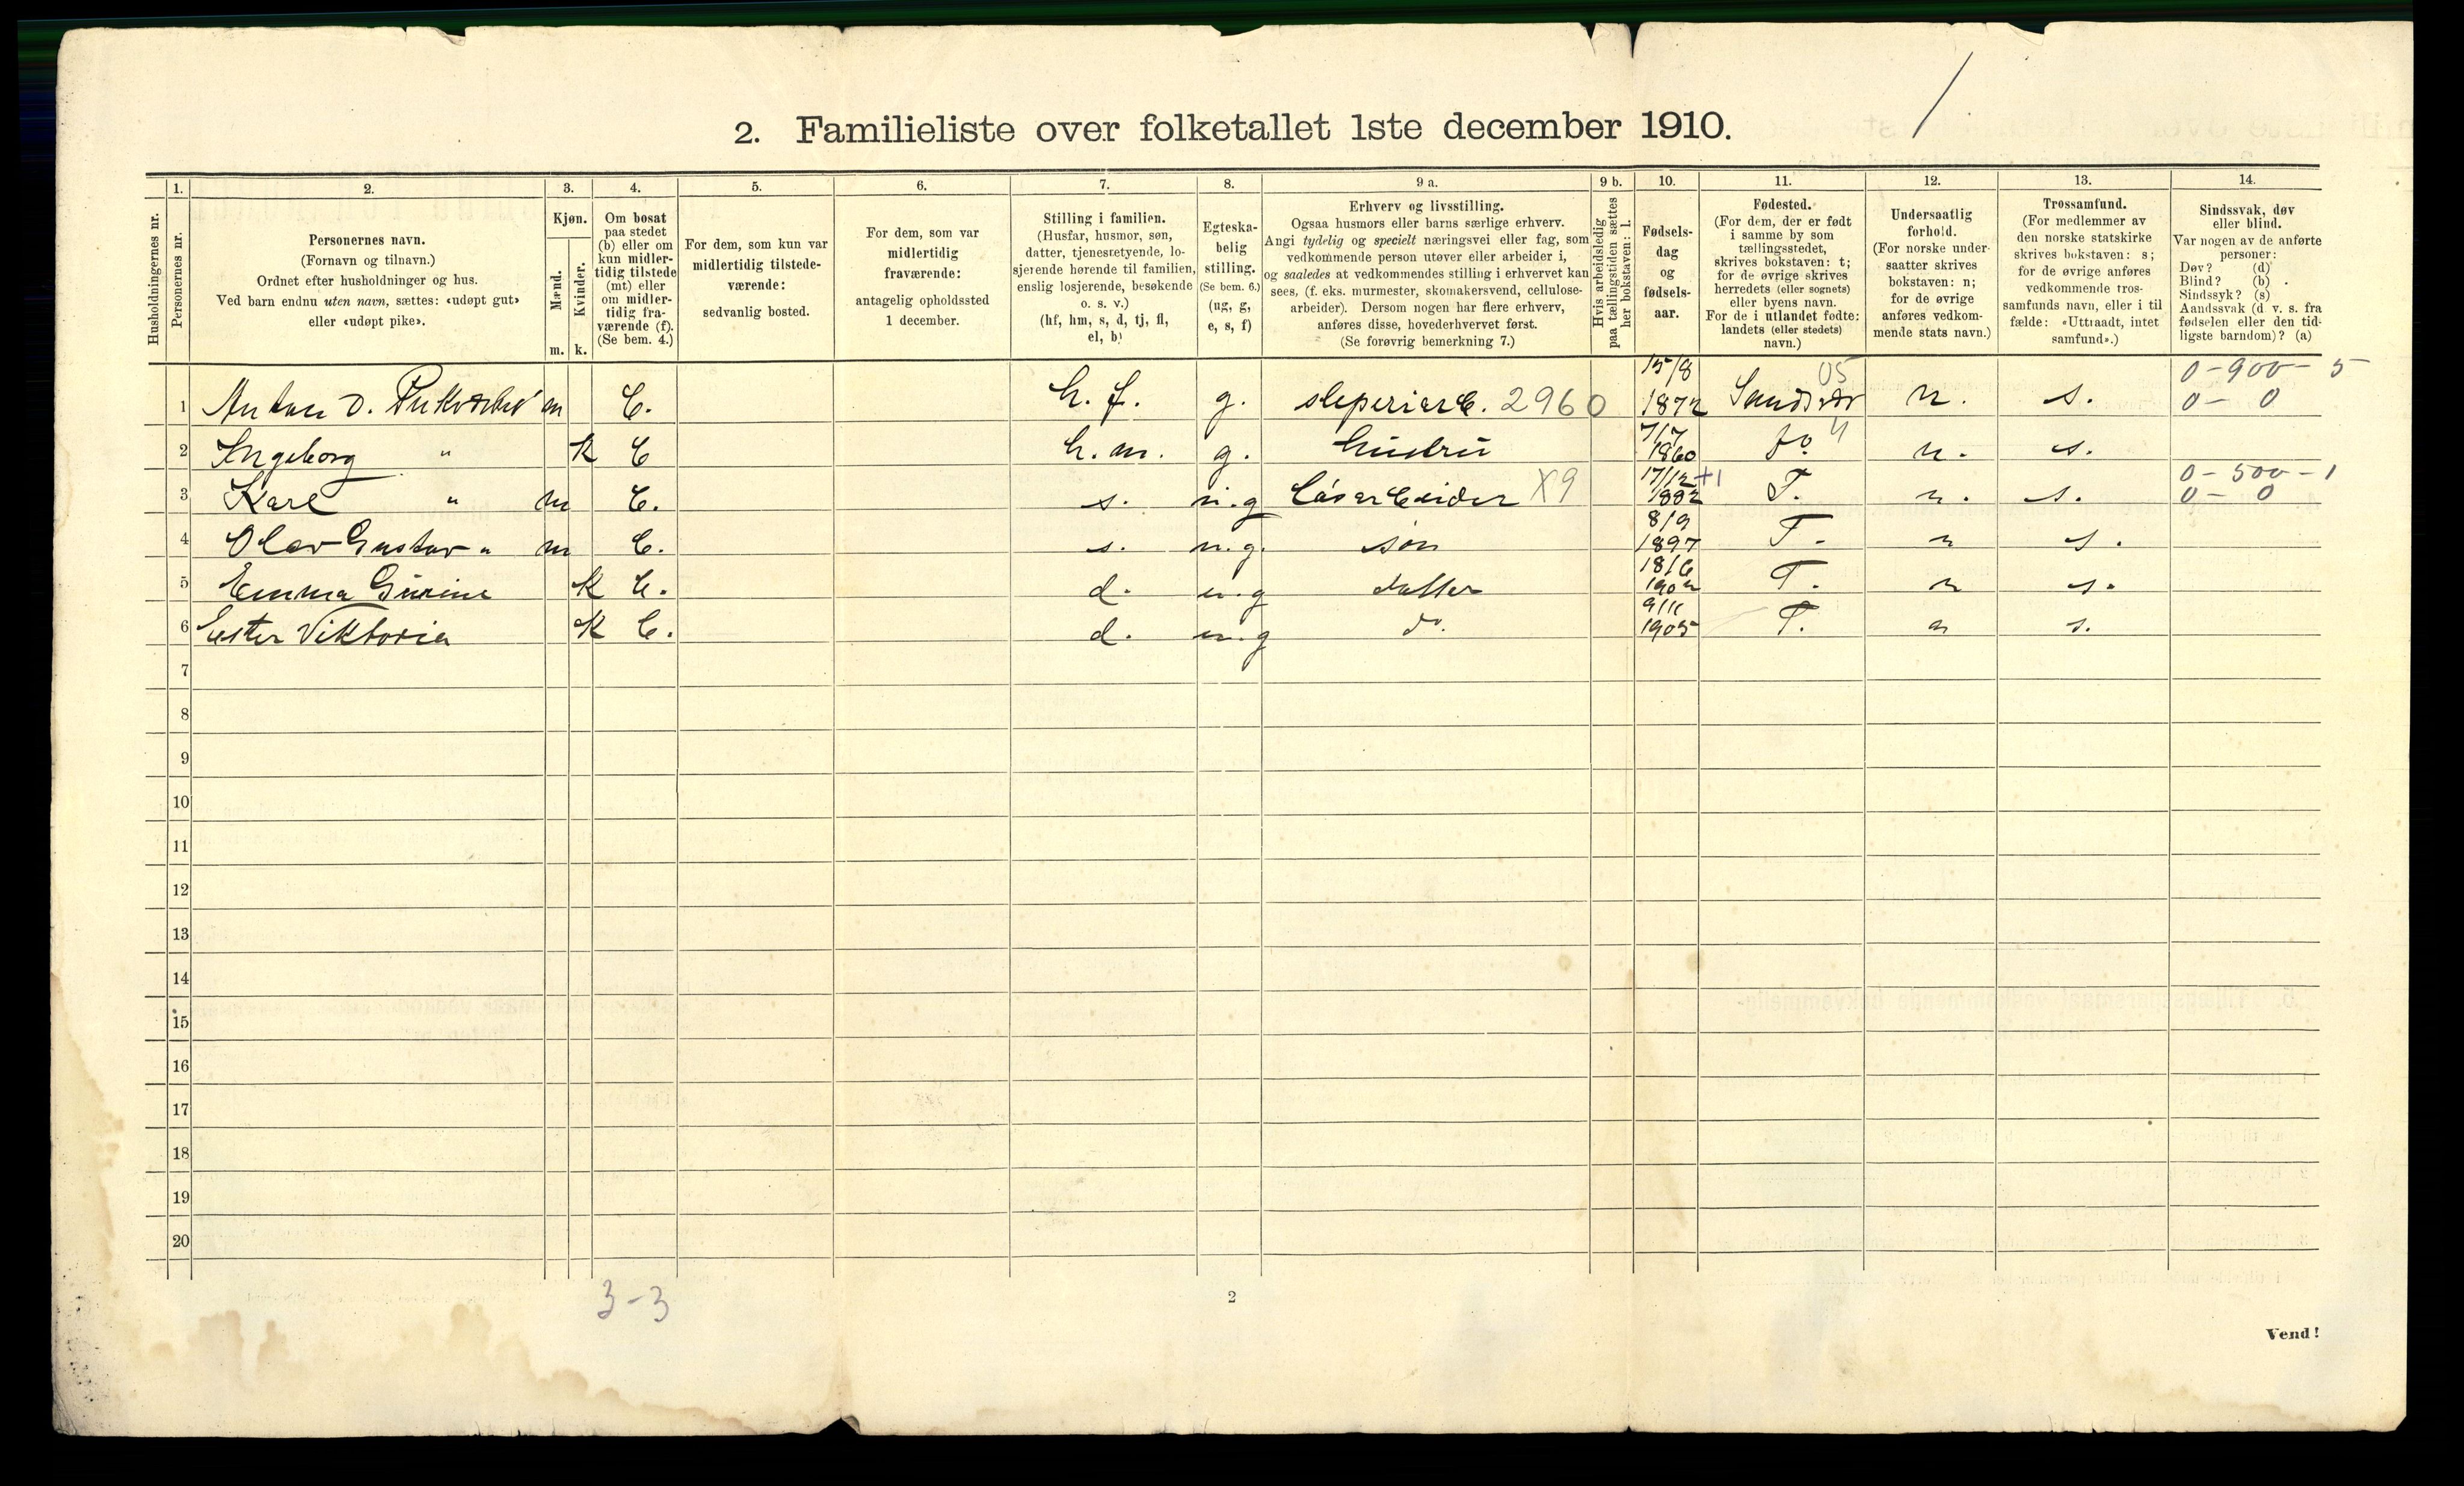 2. Familieliste over folketallet 1ste december 1910.
1. 2. 3. 4. 5. 6. 7. 8. 9 a. 9 b. 10. 11. 12. 13. 14.
Husholdningernes nr.
Personernes nr.
Personernes navn.
(Fornavn og tilnavn.)
Ordnet efter husholdninger og hus.
Ved barn endnu uten navn, sættes: «udøpt gut»
eller «udøpt pike».
Kjøn.
Mænd.
Kvinder.
m. k.
Om bosat
paa stedet
(b) eller om
kun midler-
tidig tilstede
(mt) eller
om midler-
tidig fra-
værende (f).
(Se bem. 4.)
For dem, som kun var
midlertidig tilstede-
værende:
sedvanlig bosted.
For dem, som var
midlertidig
fraværende:
antagelig opholdssted
1 december.
Stilling i familien.
(Husfar, husmor, søn,
datter, tjenestetyende, lo-
sjerende hørende til familien,
enslig losjerende, besøkende
o. s. v.)
(hf, hm, s, d, tj, fl,
el, b)
Egteska-
belig
stilling.
(Se bem. 6.)
(ug, g,
e, s, f)
Erhverv og livsstilling.
Ogsaa husmors eller barns særlige erhverv.
Angi tydelig og specielt næringsvei eller fag, som
vedkommende person utøver eller arbeider i,
og saaledes at vedkommendes stilling i erhvervet kan
sees, (f. eks. murmester, skomakersvend, cellulose-
arbeider). Dersom nogen har flere erhverv,
anføres disse, hovederhvervet først.
(Se forøvrig bemerkning 7.)
Hvis arbeidsledig
paa tællingstiden sættes
her bokstaven: l.
Fødsels-
dag
og
fødsels-
aar.
Fødested.
(For dem, der er født
i samme by som
tællingsstedet,
skrives bokstaven: t;
for de øvrige skrives
herredets (eller sognets)
eller byens navn.
For de i utlandet fødte:
landets (eller stedets)
navn.)
Undersaatlig
forhold.
(For norske under-
saatter skrives
bokstaven: n;
for de øvrige
anføres vedkom-
mende stats navn.)
Trossamfund.
(For medlemmer av
den norske statskirke
skrives bokstaven: s;
for de øvrige anføres
vedkommende tros-
samfunds navn, eller i til
fælde: «Uttraadt, intet
samfund».)
Sindssvak, døv
eller blind.
Var nogen av de anførte
personer:
Døv? (d)
Blind? (b)
Sindssyk? (s)
Aandssvak (d v. s. fra
fødselen eller den tid-
ligste barndom)? (a)
0-900-5
1 Anton D. m b. h. f. g. sleperiarb. 2960 15/8 1872 Sandsvær 05 n. s. 0- 0
2 Ingeborg " K b h. m. g. hustru 7/7 1860 do. 4 n. s.
0-500-1
3 Karl " m b. s. u.g løsarbeider X9 17/12 +1 1892 T. n. s. 0- 0
4 Olav Gustav " m b. s. u.g. søn 8/9 1897 T. n s.
5 Emma Gurine K b. d. u.g datter 18/6 1902 T. n s.
6 Ester Viktoria K b. d. u.g do. 9/11 1905 T. n s.
7
8
9
10
11
12
13
14
15
16
17
18
19
20
3-3
2
Vend!